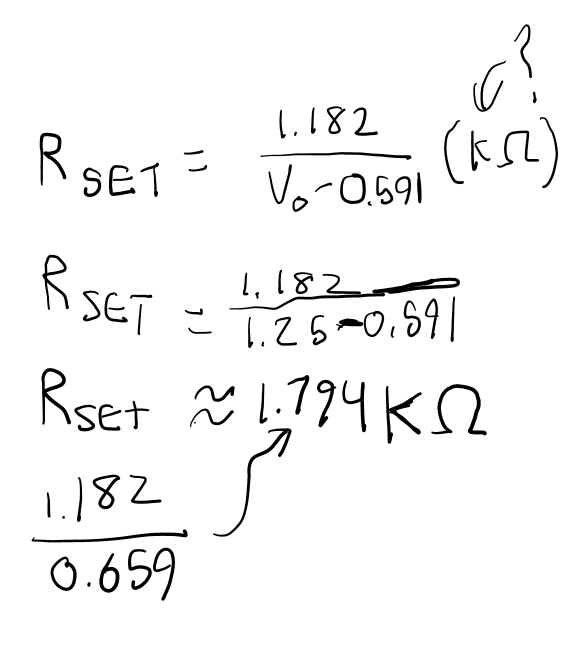 ?
R SET = 1.182 / V₀ - 0.591 (kΩ)
R SET = 1.182 / 1.25 - 0.591
RSET ≈ 1.794 kΩ
1.182 / 0.659